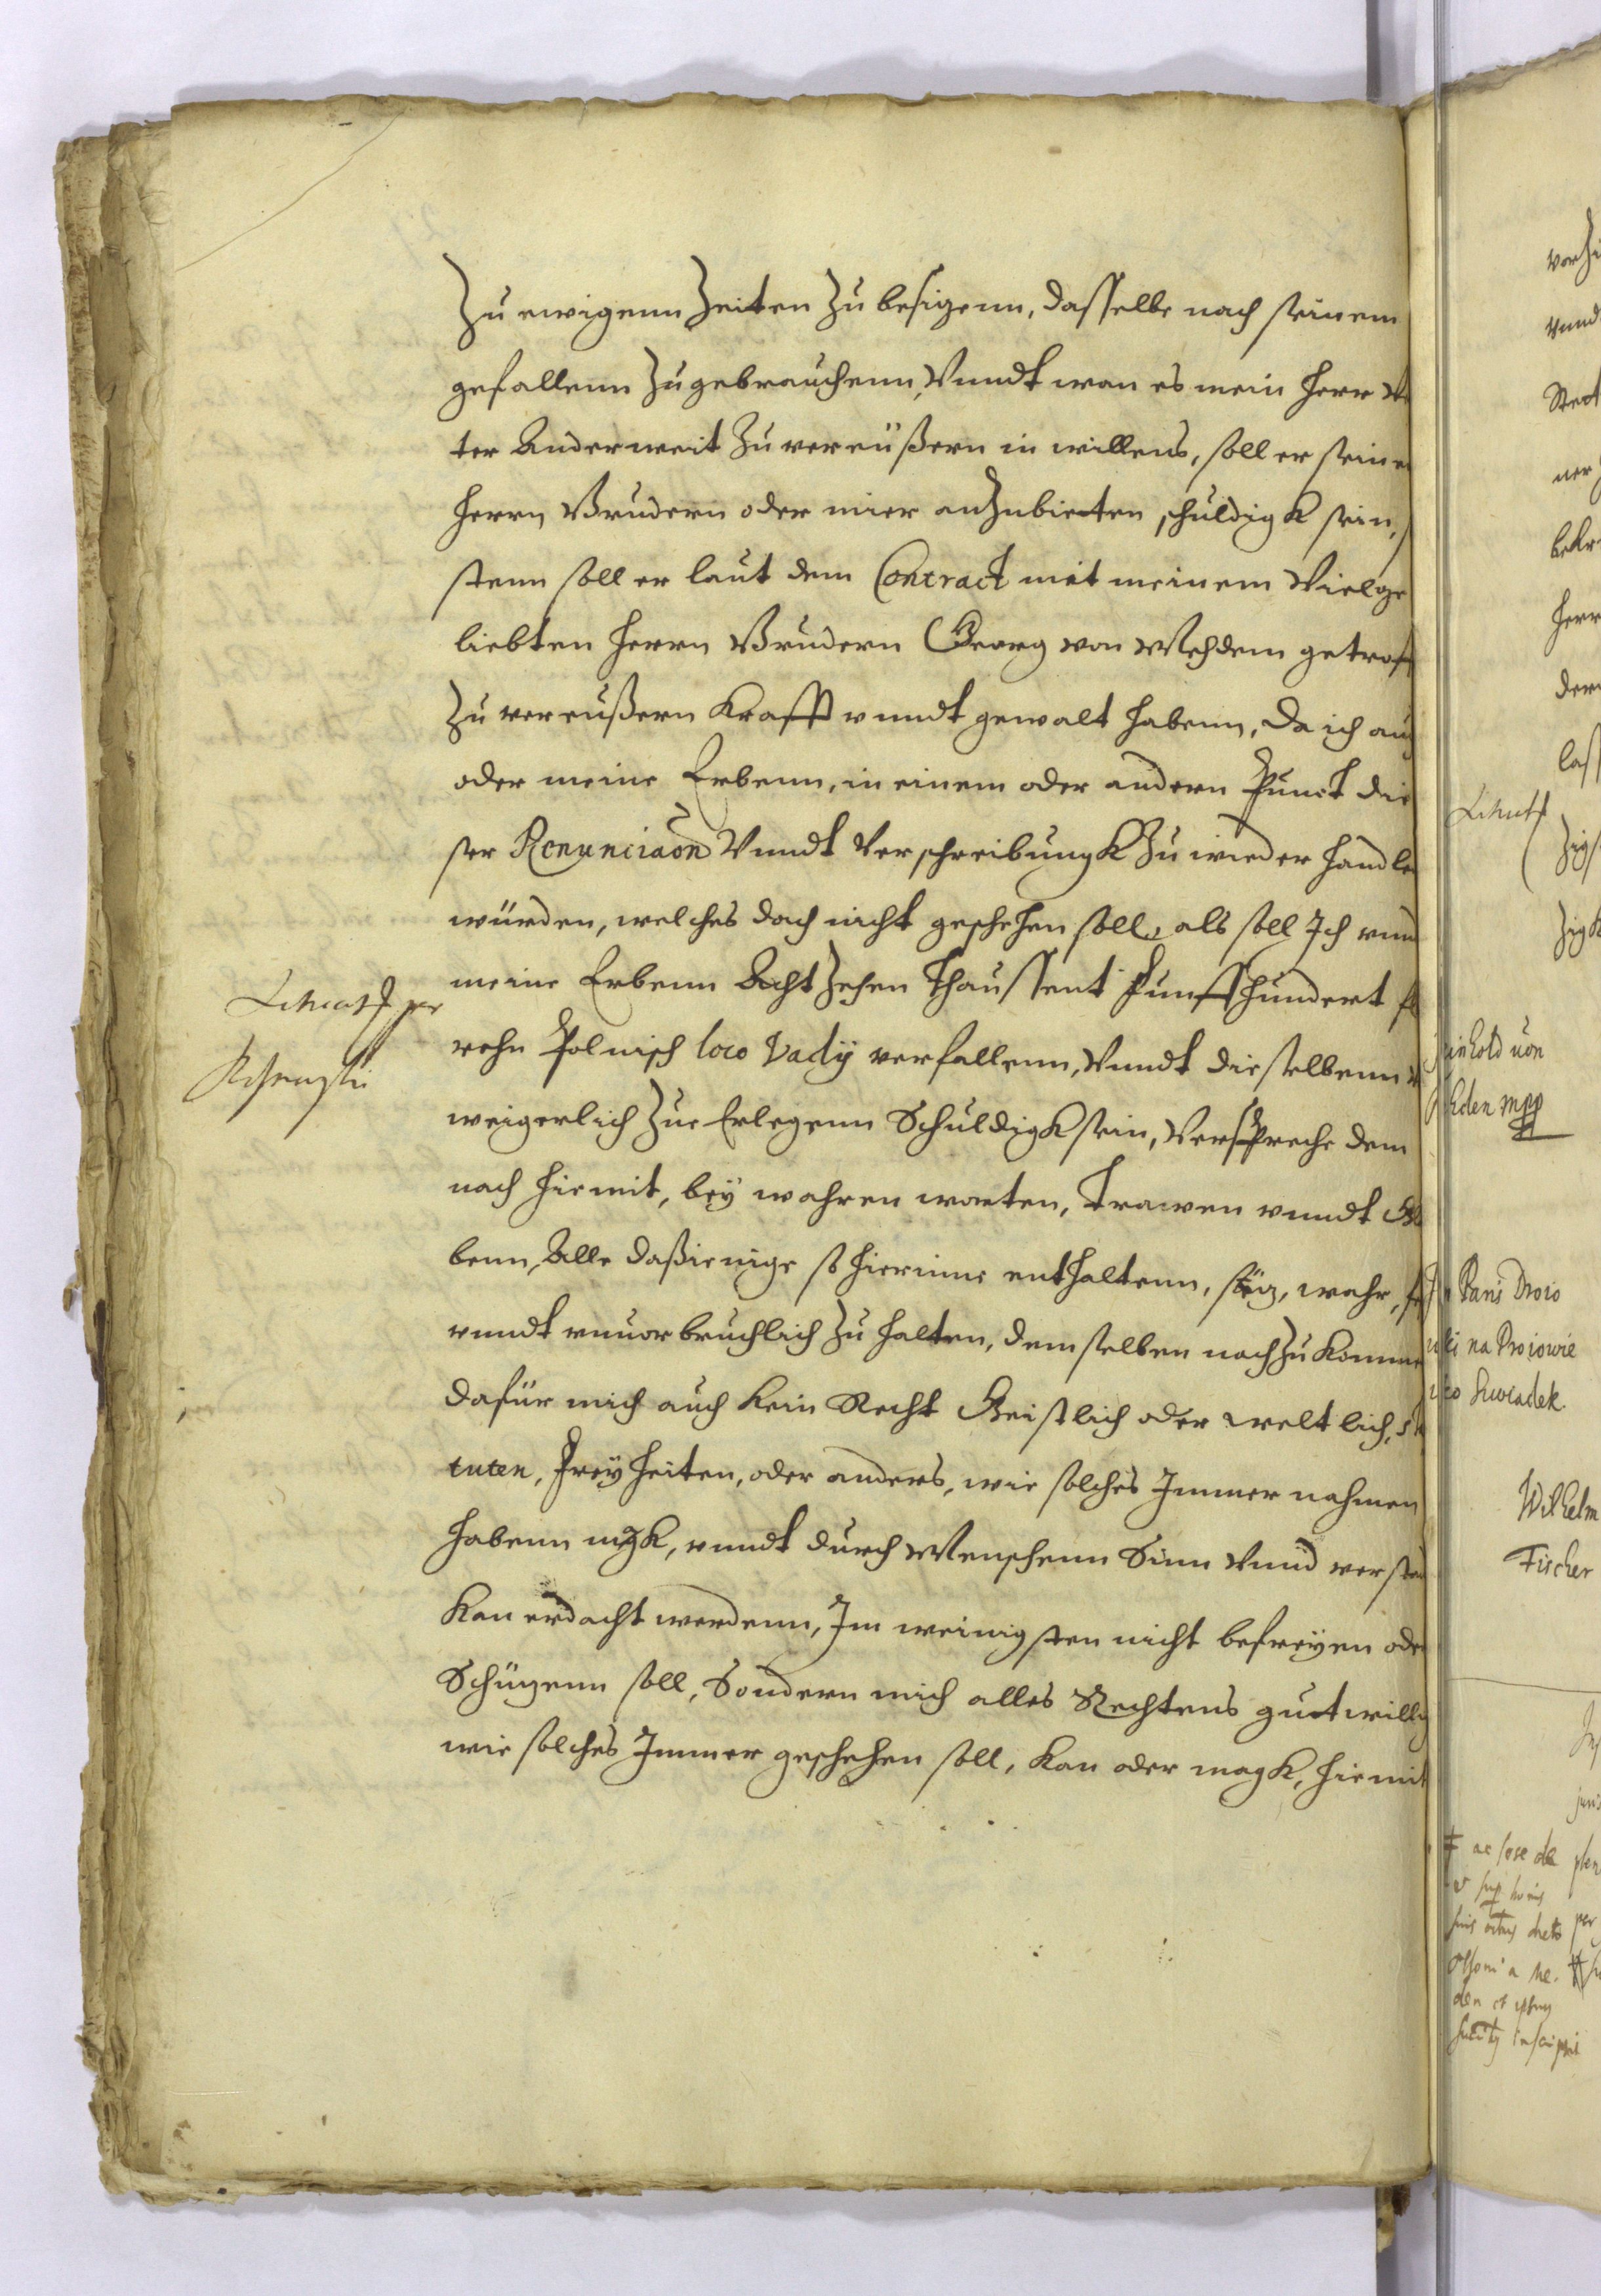 Zu ewigenn Zeiten Zu besizenn, dasselbe nach seinem
gefallenn Zugebrauchenn, Vnndt wan es mein Herr
ter Anderweit Zu vereüßern in willens, soll er seine
Herrn Brudern oder mier anZubieten schuldigk sein,
stenn soll er laut dem Contract mit meinem Vielge
liebten Herrn Brudern Georg von Mehdem getrof
Zu vereußern Krafft vnndt gewalt habenn, Da ich auch
oder meine Erbenn, in einem oder andern Punct die
ser Renunciaon Vnndt Verschreibungk Zu wieder handle
würden, welches doch nicht geschehen soll, als soll Ich vnnd
meine Erbenn AchtZehen Thaussent Funffhundert fl
Polnisch loco Vadÿ verfallenn, Vnndt dieselbenn
weigerlich Zue Erlegenn Schuldigk sein, Verspreche dem
nach hiemit, beÿ wahren worten, Trawen vnndt
benn, Alle daßienige so hierinne enthaltenn, wahr,
vnndt vnuorbruchlich Zu halten, demselben nachZukomme
dafür mich auch kein Recht Geistlich oder weltlich,
tuten, Freÿheiten, oder anders, wie solches Immer nahmen
habenn mgk, vnndt durch Menschenn Sinn Vnnd versta
kan erdacht werdenn, Im weinigsten nicht befreÿen ode
Schüzenn soll, Sondern mich alles Rechtens gutwillig
wie solches Immer geschehen soll, kan oder magk, hiemit
vnnd
ner
Herr
der
lass
uon
hden mpp
Pans
na
Swiadek
Wilhelm
Fischer